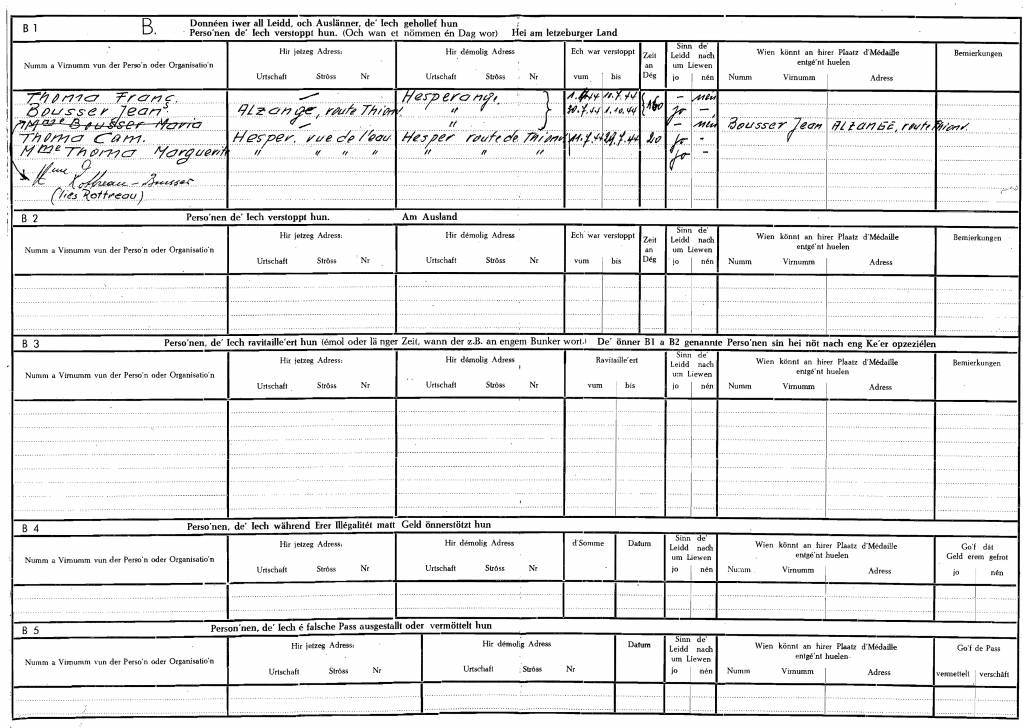 B 1
B.
Donnéen iwer all Leidd, och Auslänner, de' Iech gehollef hun
Perso'nen de' Iech verstoppt hun. (Och wan et nömmen én Dag wor) Hei am letzeburger Land
Numm a Virnumm vun der Perso'n oder Organisatio'n
Hir jetzeg Adress:
Urtschaft Ströss Nr
Hir démolig Adress
Urtschaft Ströss Nr
Ech war verstoppt
vum bis
Zeit an Dég
Sinn de' Leidd nach um Liewen
jo nén
Wien könnt an hirer Plaatz d'Médaille entgé'nt huelen
Numm Virnumm Adress
Bemierkungen
Thoma Franç. — Hesperang. 11.7.44 160 — nén
Bousser Jean Alzange, route Thionv. " 30.7.44 1.10.44 jo —
Mme Bousser Maria " — nén Bousser Jean ALZANGE, route Thionv.
Thoma Cam. Hesper. rue de l'eau Hesper route de Thionv. 11.7.44 29.7.44 20 jo -
Mme Thoma Marguerite " " " " " " " " jo -
Mme
Rottreau - Bousser
(lies Rottreau)
B 2
Perso'nen de' Iech verstoppt hun. Am Ausland
Numm a Virnumm vun der Perso'n oder Organisatio'n
Hir jetzeg Adress:
Urtschaft Ströss Nr
Hir démolig Adress
Urtschaft Ströss Nr
Ech war verstoppt
vum bis
Zeit an Dég
Sinn de' Leidd nach um Liewen
jo nén
Wien könnt an hirer Plaatz d'Médaille entgé'nt huelen
Numm Virnumm Adress
Bemierkungen
B 3
Perso'nen, de' Iech ravitaille'ert hun (émol oder länger Zeit, wann der z.B. an engem Bunker wort.) De' önner B1 a B2 genannte Perso'nen sin hei nöt nach eng Ke'er opzeziélen
Numm a Virnumm vun der Perso'n oder Organisatio'n
Hir jetzeg Adress:
Urtschaft Ströss Nr
Hir démolig Adress
Urtschaft Ströss Nr
Ravitaille'ert
vum bis
Sinn de' Leidd nach um Liewen
jo nén
Wien könnt an hirer Plaatz d'Médaille entgé'nt huelen
Numm Virnumm Adress
Bemierkungen
B 4
Perso'nen, de' Iech während Erer Illégalitét matt Geld önnerstötzt hun
Numm a Virnumm vun der Perso'n oder Organisatio'n
Hir jetzeg Adress:
Urtschaft Ströss Nr
Hir démolig Adress
Urtschaft Ströss Nr
d'Somme
Datum
Sinn de' Leidd nach um Liewen
jo nén
Wien könnt an hirer Plaatz d'Médaille entgé'nt huelen
Numm Virnumm Adress
Go'f dât Geld erem gefrot
jo nén
B 5
Person'nen, de' Iech é falsche Pass ausgestallt oder vermöttelt hun
Numm a Virnumm vun der Perso'n oder Organisatio'n
Hir jetzeg Adress:
Urtschaft Ströss Nr
Hir démolig Adress
Urtschaft Ströss Nr
Datum
Sinn de' Leidd nach um Liewen
jo nén
Wien könnt an hirer Plaatz d'Médaille entgé'nt huelen
Numm Virnumm Adress
Go'f de Pass
vermettelt verschâft